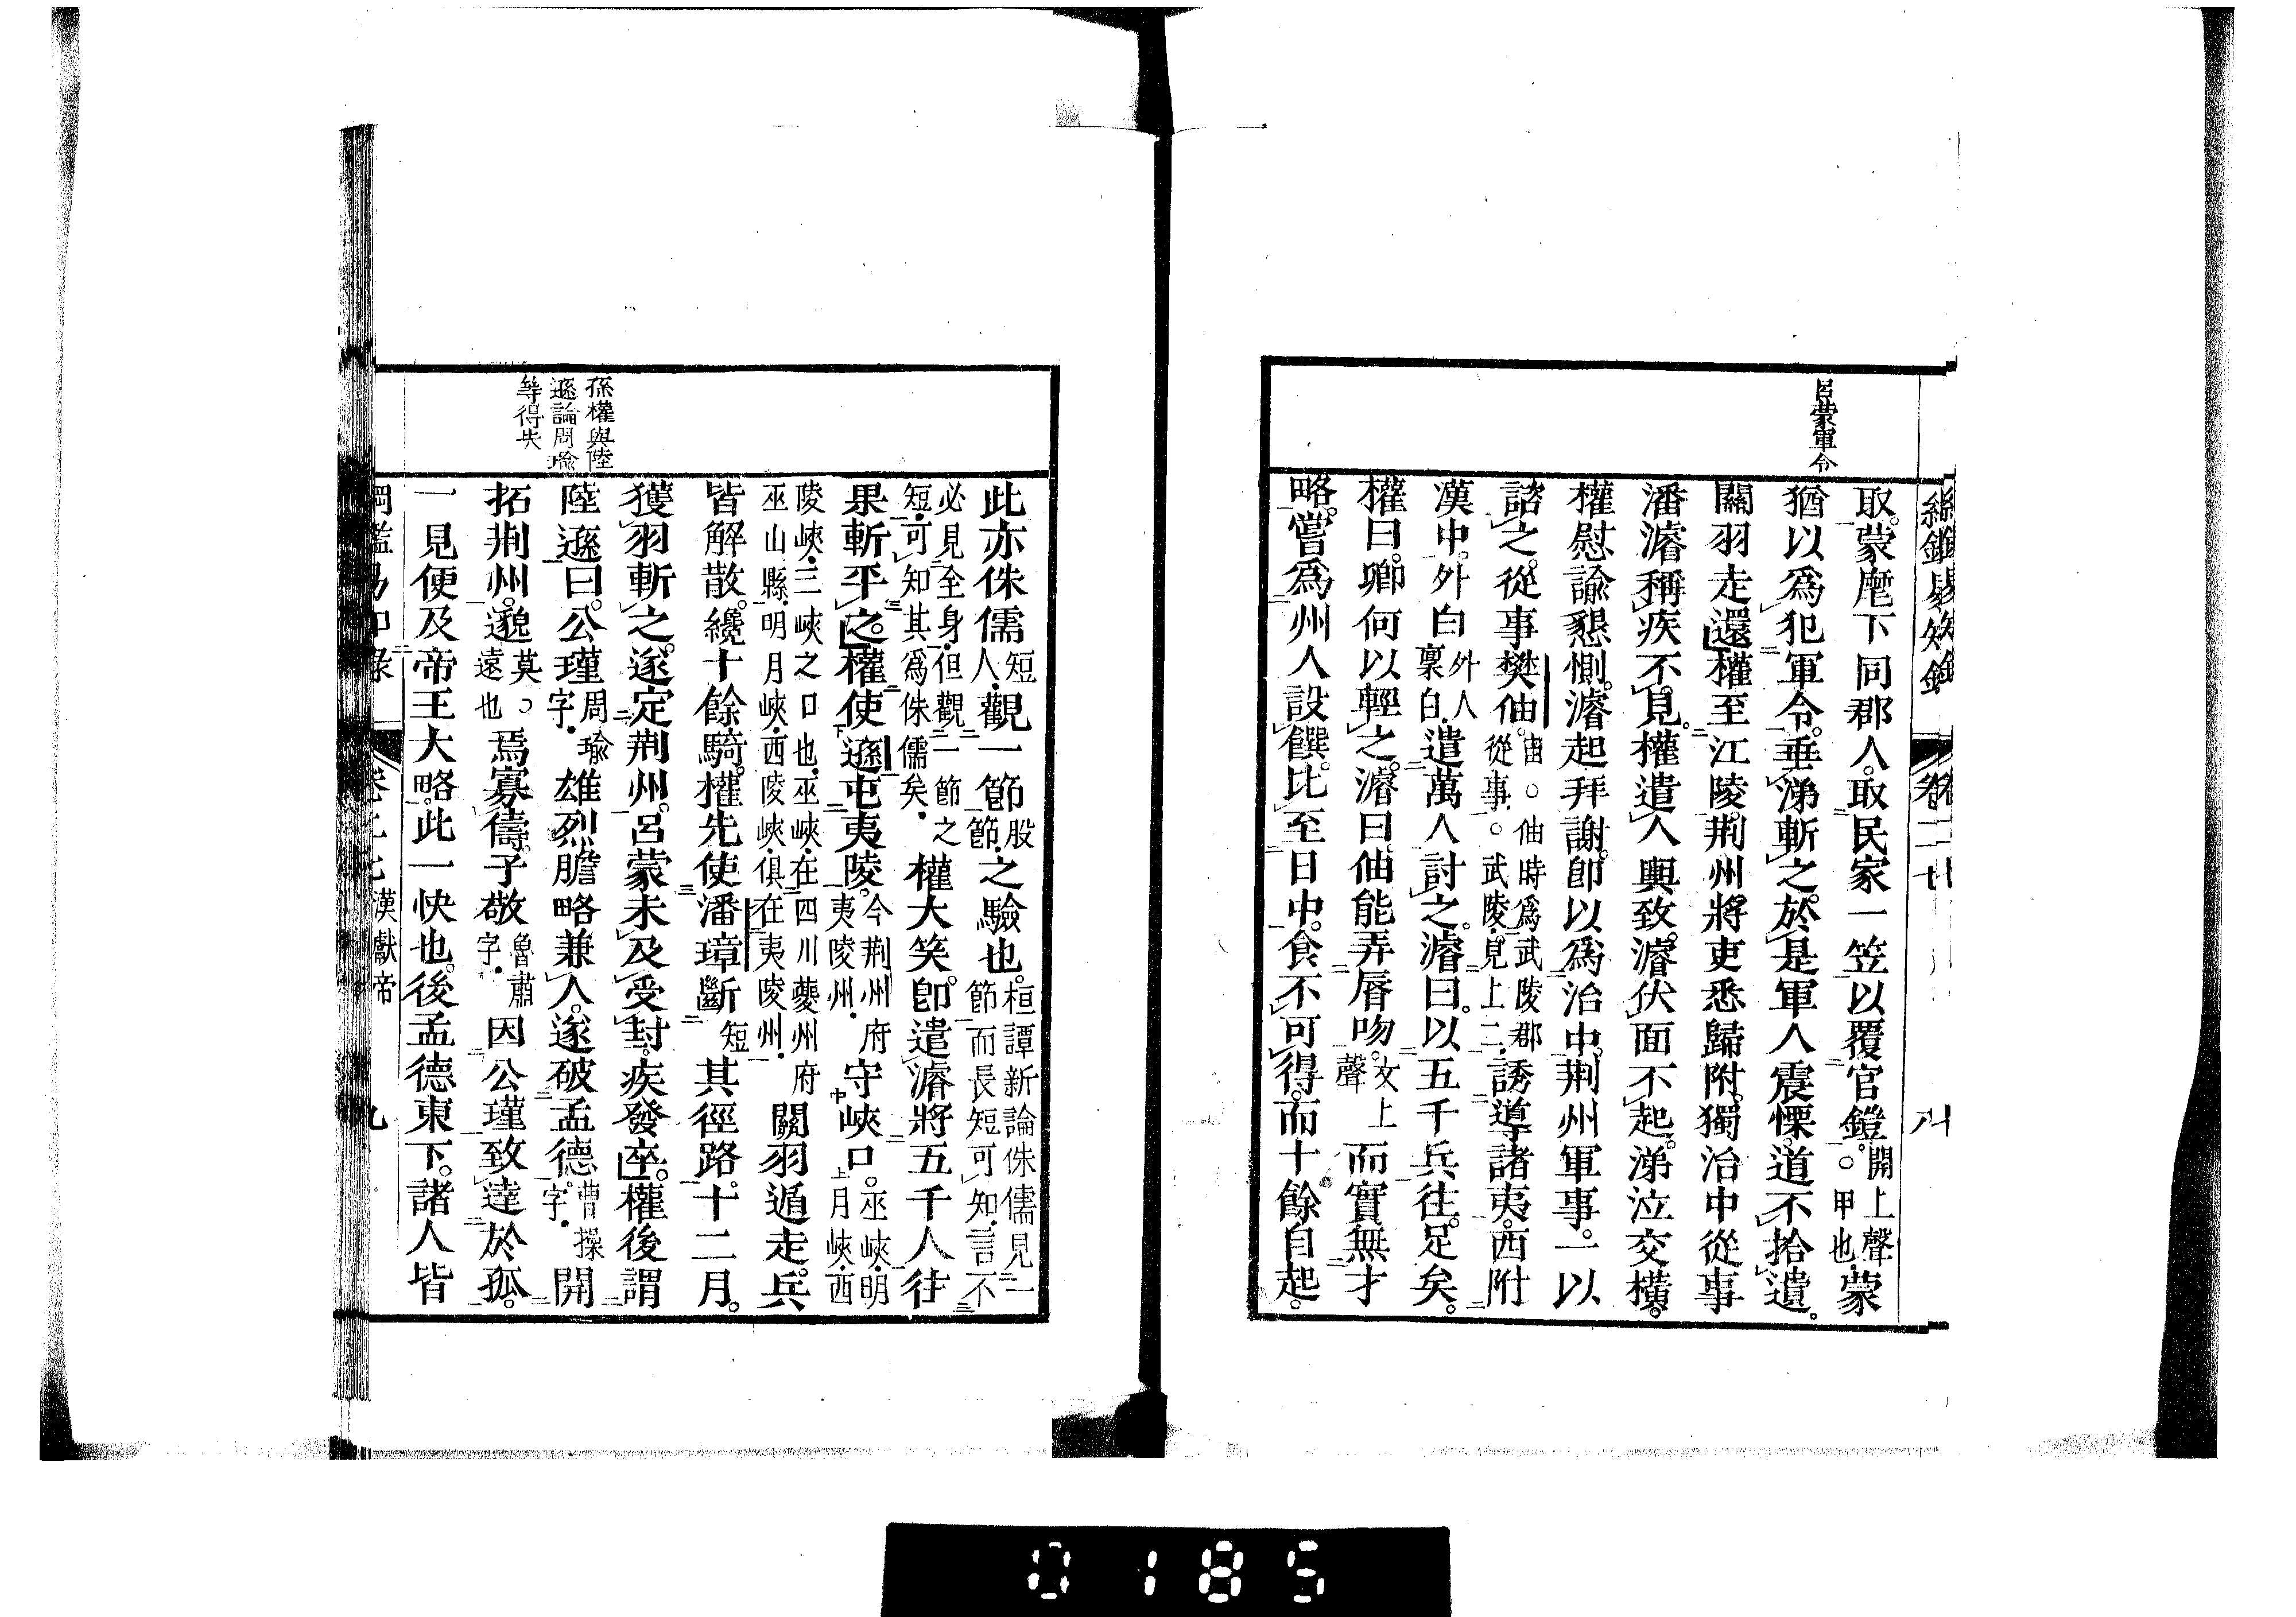 呂蒙軍令
取。蒙麾下同郡人。取民家一笠以覆官鎧。開上聲○甲也。蒙
猶以爲犯軍令。垂涕斬之。於是軍人震慄。道不拾遺。
關羽走還。權至江陵。荆州將吏悉歸附。獨治中從事
潘濬稱疾不見。權遣人輿致。濬伏面不起。涕泣交橫。
權慰諭懇惻。濬起拜謝。卽以爲治中。荆州軍事。一以
諮之。從事樊伷。宙○伷時爲武陵郡從事○武陵見上二誘導諸夷。西附
漢中。外白外人稟白遣萬人討之。濬曰。以五千兵往。足矣。
權曰。卿何以輕之。濬曰。伷能弄脣吻。文上聲而實無才
略。嘗爲州人設饌。比至日中。食不可得。而十餘自起。
此亦侏儒短人觀一節股節之驗也。桓譚新論侏儒見一節而長短可知言不
必見全身但觀一節之短可知其爲侏儒矣權大笑。卽遣濬將五千人往
果斬平之。權使遜屯夷陵。今荆州府夷陵州守峽口。巫峽明月峽西
陵峽三峽之口也巫峽在四川夔州府巫山縣明月峽西陵峽俱在夷陵州關羽遁走。兵
皆解散。纔十餘騎。權先使潘璋斷短其徑路。十二月。
獲羽斬之。遂定荆州。呂蒙未及受封。疾發卒。權後謂
孫權與陸
遜論周瑜
等得失
陸遜曰。公瑾周瑜字雄烈膽略兼人。遂破孟德。曹操字開
拓荆州。邈莫○遠也焉寡儔。子敬魯肅字因公瑾致達於孤。
一見便及帝王大略。此一快也。後孟德東下。諸人皆
漢獻帝 九
0185